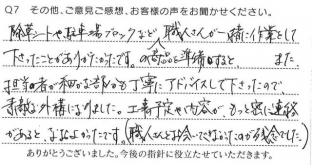 Q7 その他、ご意見ご感想、お客様の声をお聞かせください。
除草シートや駐車場ブロックなど、職人さんが一緒に作業をして
下さったことがありがたかったです。の商品を準備するなど、また、
担当の者が細かな部分も丁寧にアドバイスして下さったので、
素敵な外構になりました。工事予定や内容が、もっと密に連絡
があると、なおよかったです。(職人さんとお会いできなかったのが残念でした。)
ありがとうございました。今後の指針に役立たせていただきます。